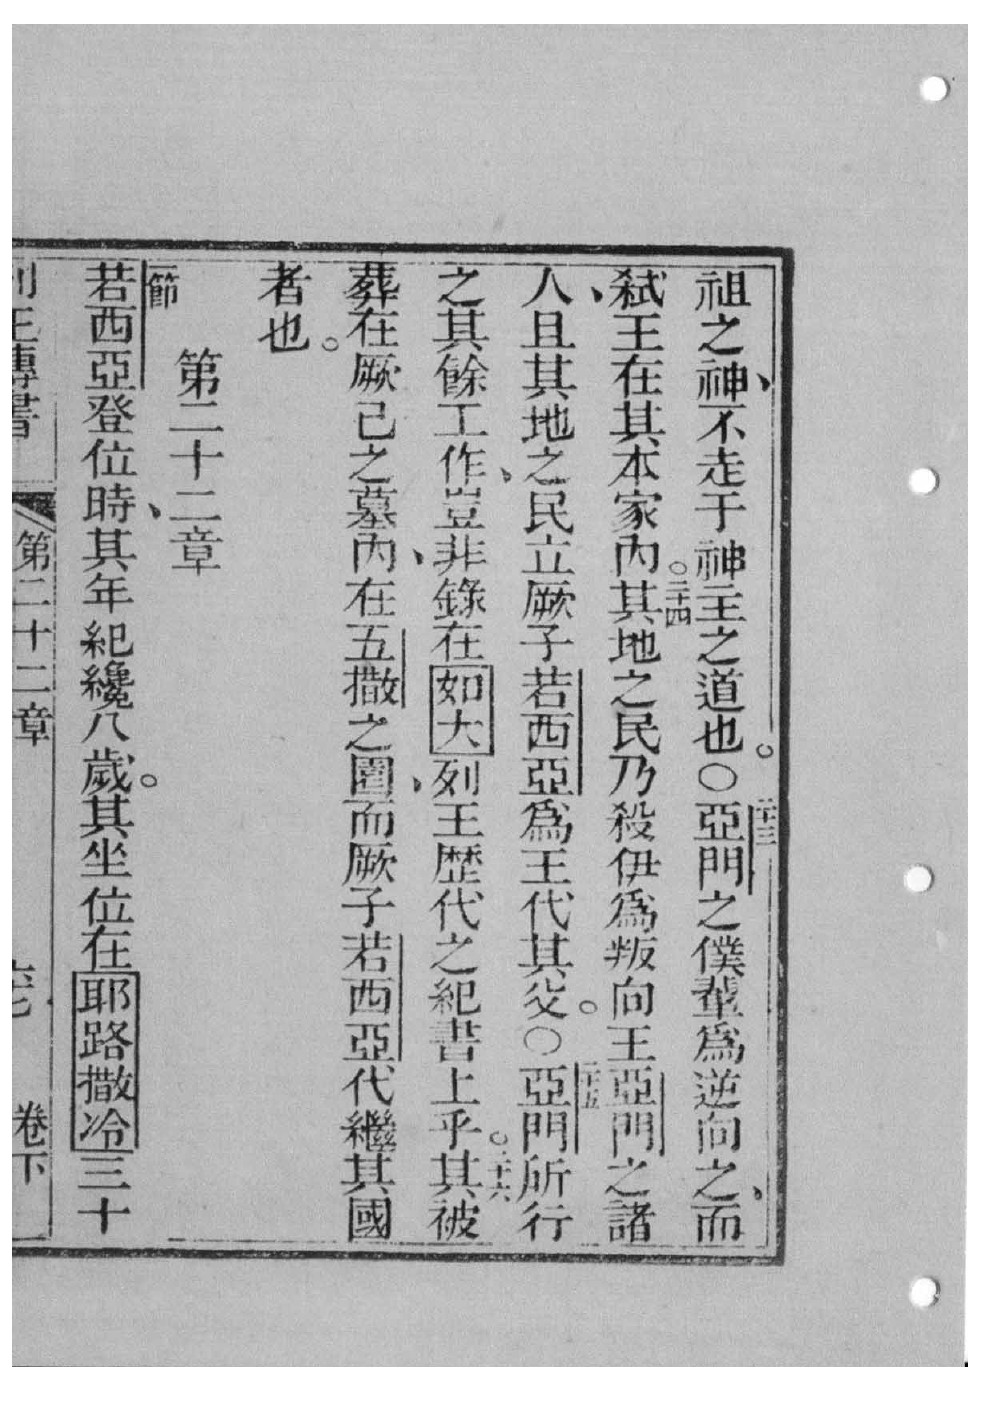 祖之神、不走于神主之道也。○二十三亞門之僕輩爲逆向之、而
弒王在其本家內。二十四其地之民乃殺伊爲叛向王亞門之諸
人、且其地之民立厥子若西亞爲王代其父。○二十五亞門所行
之其餘工作、豈非錄在如大列王歷代之紀書上乎。二十六其被
葬在厥己之墓內、在五撒之園、而厥子若西亞代繼其國
者也。
第二十二章
一節若西亞登位時、其年紀纔八歲。其坐位在耶路撒冷三十
列王傳書 第二十二章 卷下